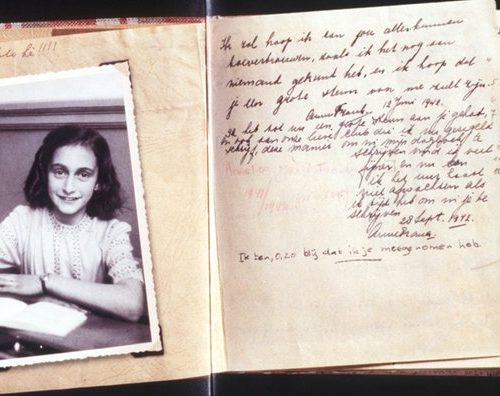 hè!!!!
Ik zal hoop ik aan jou alles kunnen
toevertrouwen, zoals ik het nog aan
niemand gekund heb, en ik hoop dat
je een grote steun voor me zult zijn.
Anne Frank. 12 Juni 1942.
Ik heb tot nu toe een grote steun aan je gehad,
en ook aan onze lieve club die ik nu geregeld
schrijf, deze manier om in mijn dagboek te
schrijven vind ik veel
fijner en nu kan
ik het uur haast
niet afwachten als
ik tijd heb om in je te
schrijven.
28 Sept. 1942.
Anne Frank.
Ik ben, O, zo blij dat ik je meegenomen heb.